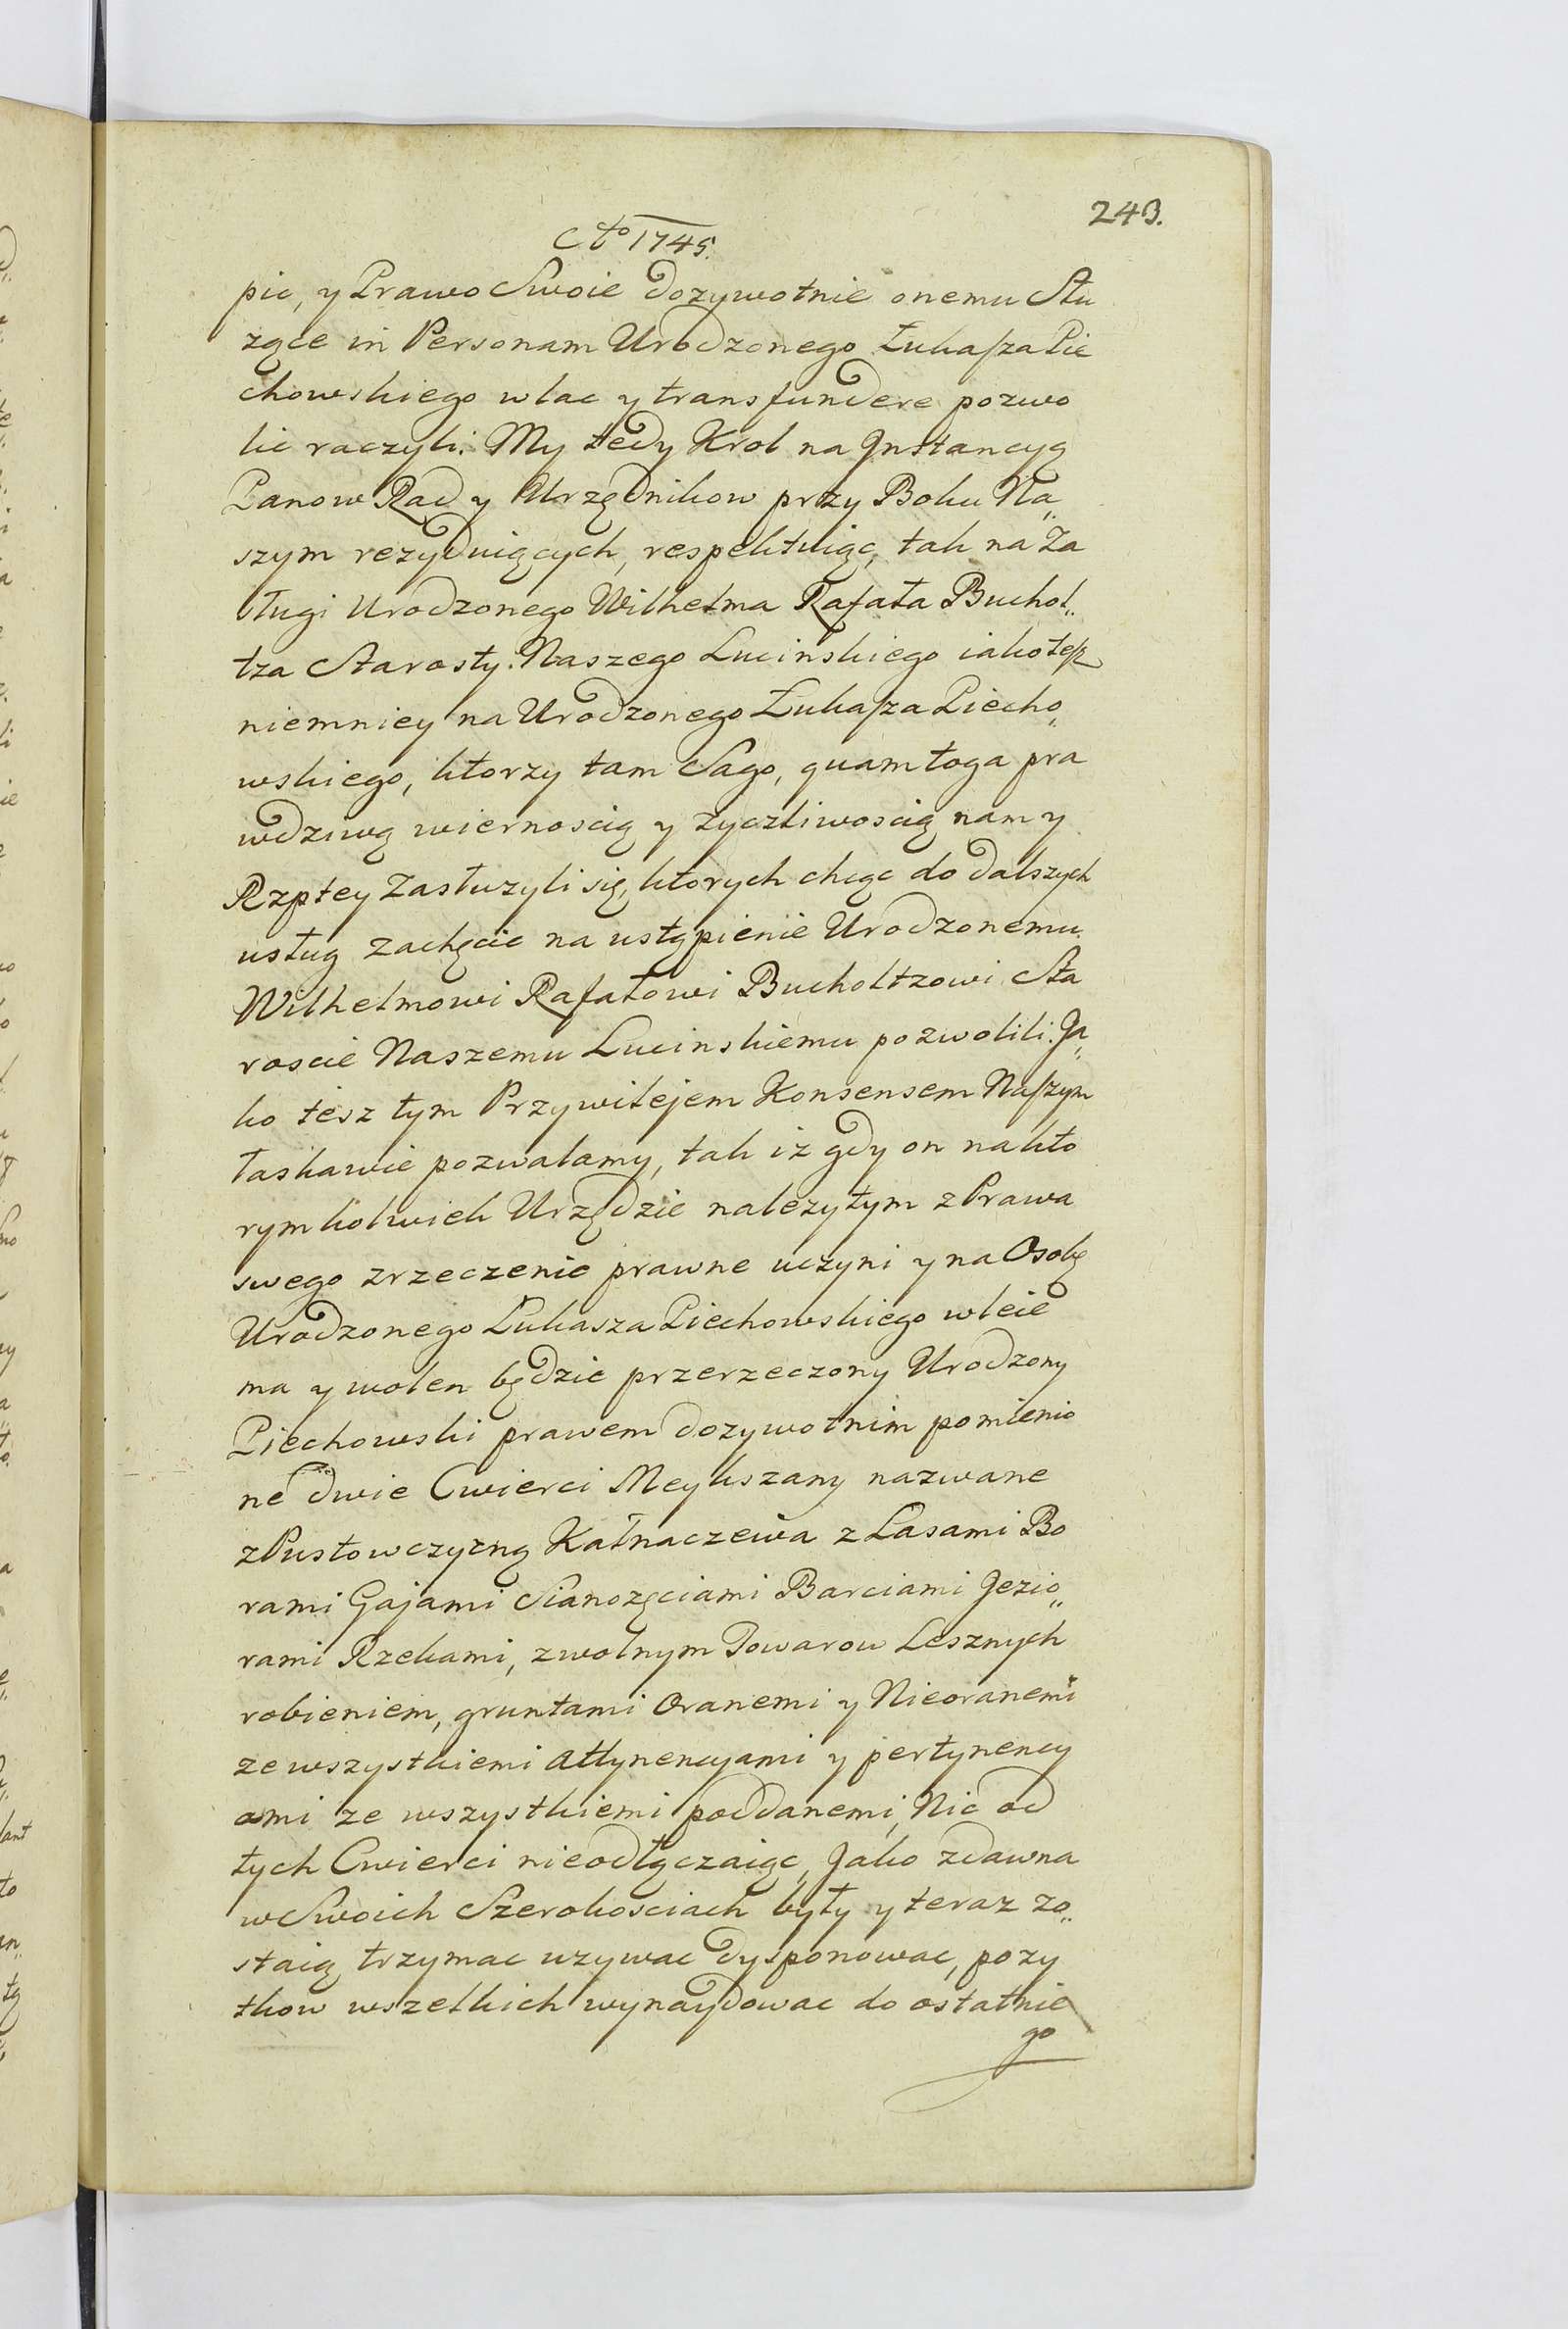 243.
Cto 1745.
pic, y Prawo Swoie dozywotnie onemu Słu
zące in Personam Urodzonego Łukasza Pie
chowskiego wlac y transfundere pozwo
lic raczyli. My tedy Krol na Instancyą
Panow Rad y Urzędnikow przy Boku Na„
szym rezyduiących, respektuiąc, tak na Za
sługi Urodzonego Wilhelma Rafała Buchol„
tza Starosty Naszego Lucinskiego iako tesz
niemniey na Urodzonego Łukasza Piecho„
wskiego, ktorzy tam Sago, quam toga pra
wdziwą wiernoscią y zyczliwoscią nam y
Rzptey Zasłuzyli się, ktorych chcąc do dalszych
usług zachęcic na ustąpienie Urodzonemu
Wilhelmowi Rafałowi Bucholtzowi Sta
roscie Naszemu Lucinskiemu pozwolili. Ja„
ko tesz tym Przywilejem Konsensem Naszym
łaskawie pozwalamy, tak iz gdy on na kto
rymkolwiek Urzędzie nalezytym z Prawa
swego zrzeczenie prawne uczyni y na Osobę
Urodzonego Łukasza Piechowskiego wleie
ma y wolen będzie przerzeczony Urodzony
Piechowski prawem dozywotnim pomienio
ne dwie Cwierci Meykszany nazwane
z Pustowczyzną Kałnaczewa z Lasami Bo
rami Gajami Sianozęciami Barciami Jezio„
rami Rzekami, z wolnym Towarow Lesznych
robieniem, gruntami Oranemi y Nieoranemi
ze wszystkiemi attynencyami y pertynency
ami ze wszystkiemi poddanemi, Nic od
tych Cwierci nieodłączaiąc, Jako zdawna
w Swoich Szerokosciach były y teraz zo„
staią trzymac uzywac dysponowac, pozy
tkow wszelkich wynaydowac do ostatnie
go